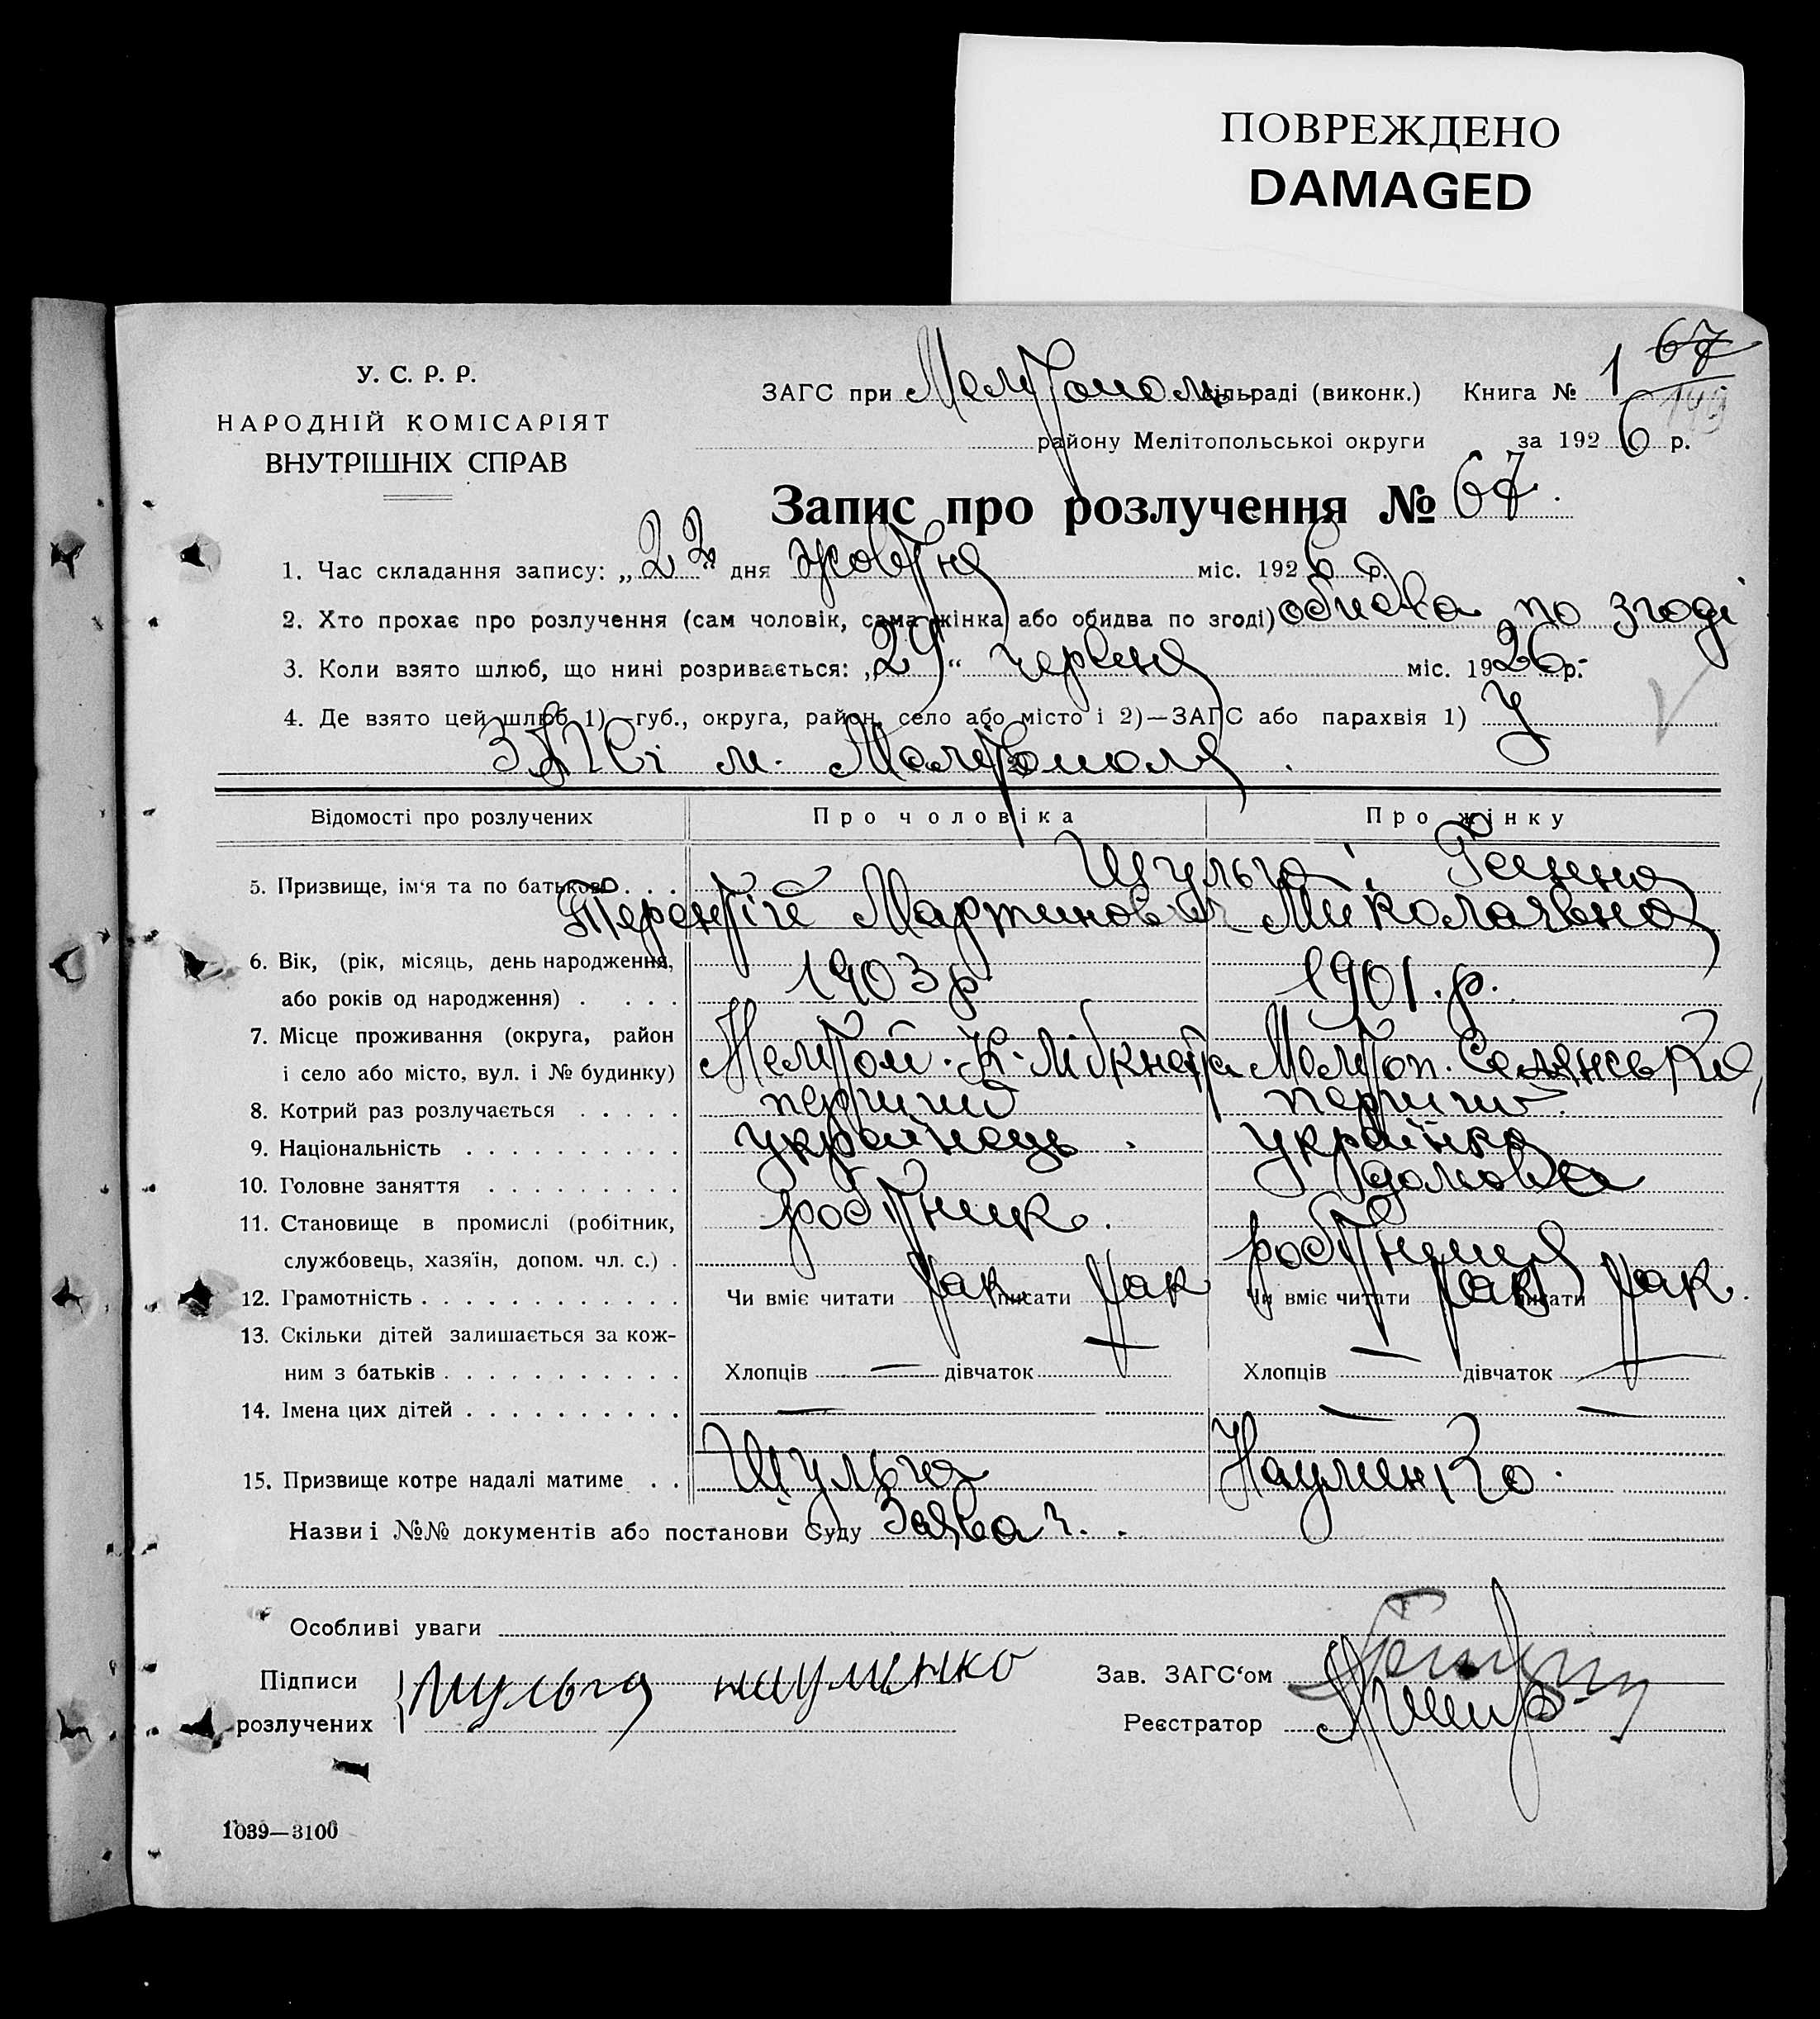 ПОВРЕЖДЕНО
DAMAGED
У. С. Р. Р.
НАРОДНІЙ КОМІСАРІЯТ
ВНУТРІШНІХ СПРАВ
ЗАГС при Мелітополь сільраді (виконк.) Книга № 1 67
149
району Мелітопольської округи за 1926 р.
Запис про розлучення № 67.
1. Час складання запису: „22“ дня жовтня міс. 1926 р.
2. Хто прохає про розлучення (сам чоловік, сама жінка або обидва по згоді) обидва по згоді
3. Коли взято шлюб, що нині розривається: „29“ червня міс. 1926 р.
4. Де взято цей шлюб 1) -губ., округа, район, село або місто і 2)—ЗАГС або парахвія 1) У
ЗАГСі м. Мелітополя.
Відомості про розлучених Про чоловіка Про жінку
5. Призвище, ім‘я та по батькові . . . Шульга
Терентій Мартинович Миколаївна
6. Вік, (рік, місяць, день народження,
або років од народження) . . . . 1903 р. 1901. р.
7. Місце проживання (округа, район
і село або місто, вул. і № будинку) Меліто́п. К. Лібкнехта Мелітоп. Селянська,
8. Котрий раз розлучається . . . . . перший перший.
9. Національність . . . . . . . . . . українець. українка
10. Головне заняття . . . . . . . . . домова
11. Становище в промислі (робітник,
службовець, хазяїн, допом. чл. с.) . робітник. робітниця
12. Грамотність . . . . . . . . . . . . . Чи вміє читати так писати так Чи вміє читати так писати так.
13. Скільки дітей залишається за кож-
ним з батьків . . . . . . . . . . . Хлопців — дівчаток — Хлопців — дівчаток —
14. Імена цих дітей . . . . . . . . . . — — —
15. Призвище котре надалі матиме . . Шульга Науменко.
Назви і №№ документів або постанови Суду Заява
Особливі уваги
Підписи Шульга науменко Зав. ЗАГС‘ом
розлучених Реєстратор
1039—3100